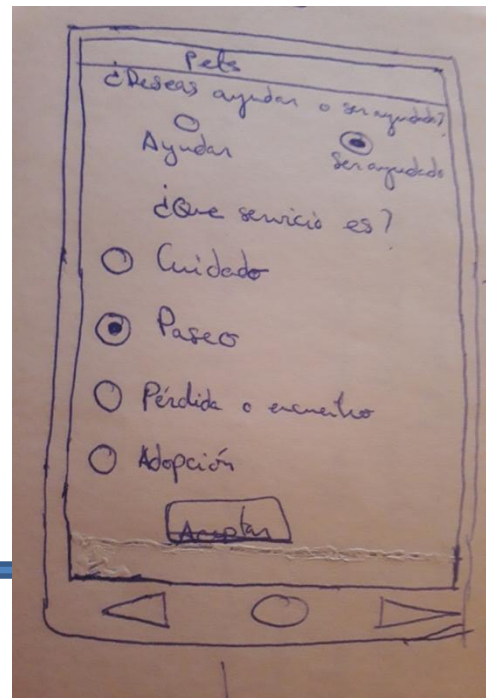 Pets
¿Deseas ayudar o ser ayudado?
Ayudar
Ser ayudado
¿Que servicio es?
Cuidado
Paseo
Pérdida o encuentro
Adopción
Aceptar